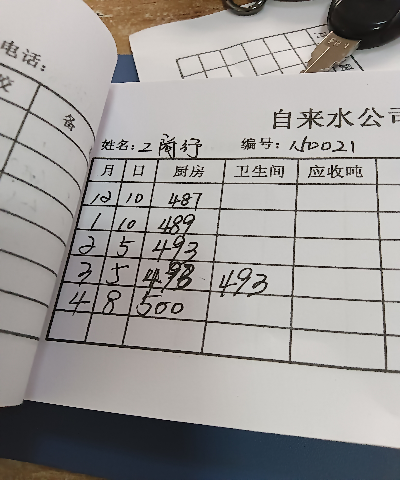 电话:
名
自来水公司
姓名: 编号: 150021
月 日 厨房 卫生间 应收吨
12 10 487
1 10 489
2 5 493
3 5 493
4 8 500